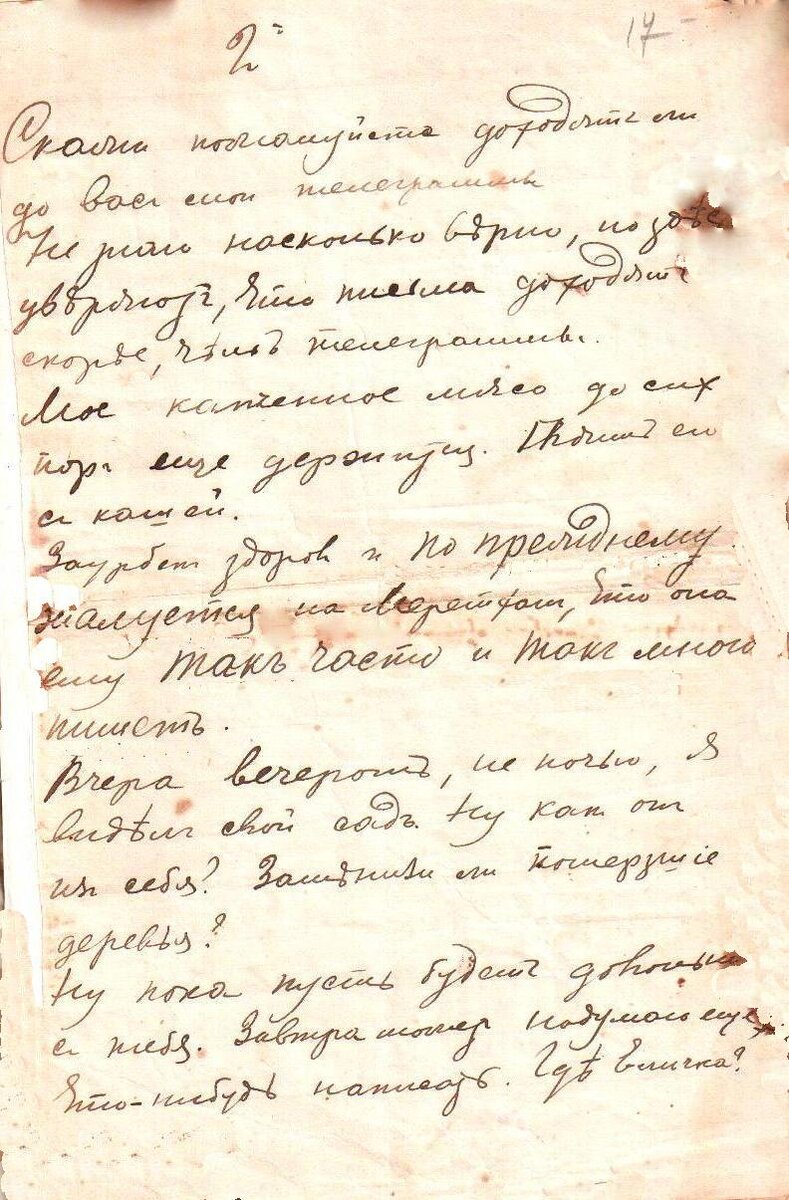 2
17
Скажи пожалуйста доходятъ ли
до васъ мои телеграммы
Не знаю насколько вѣрно, но здѣсь
увѣряютъ, что письма доходятъ
скорѣе, чѣмъ телеграммы.
Мое копченное мясо до сихъ
поръ еще держится. Ѣдимъ его
съ кашей.
Заурбек здоров и по прежднему
жалуется на, что она
ему такъ часто и такъ много
пишетъ.
Вчера вечеромъ, не ночью, я
видѣлъ свой садъ. Ну как он
из себя? Замѣнили ли померзшіе
деревья?
Ну пока пусть будетъ довольно
съ тебя. Завтра может подумаю еще
что-нибудь написать. Гдѣ Еличка?